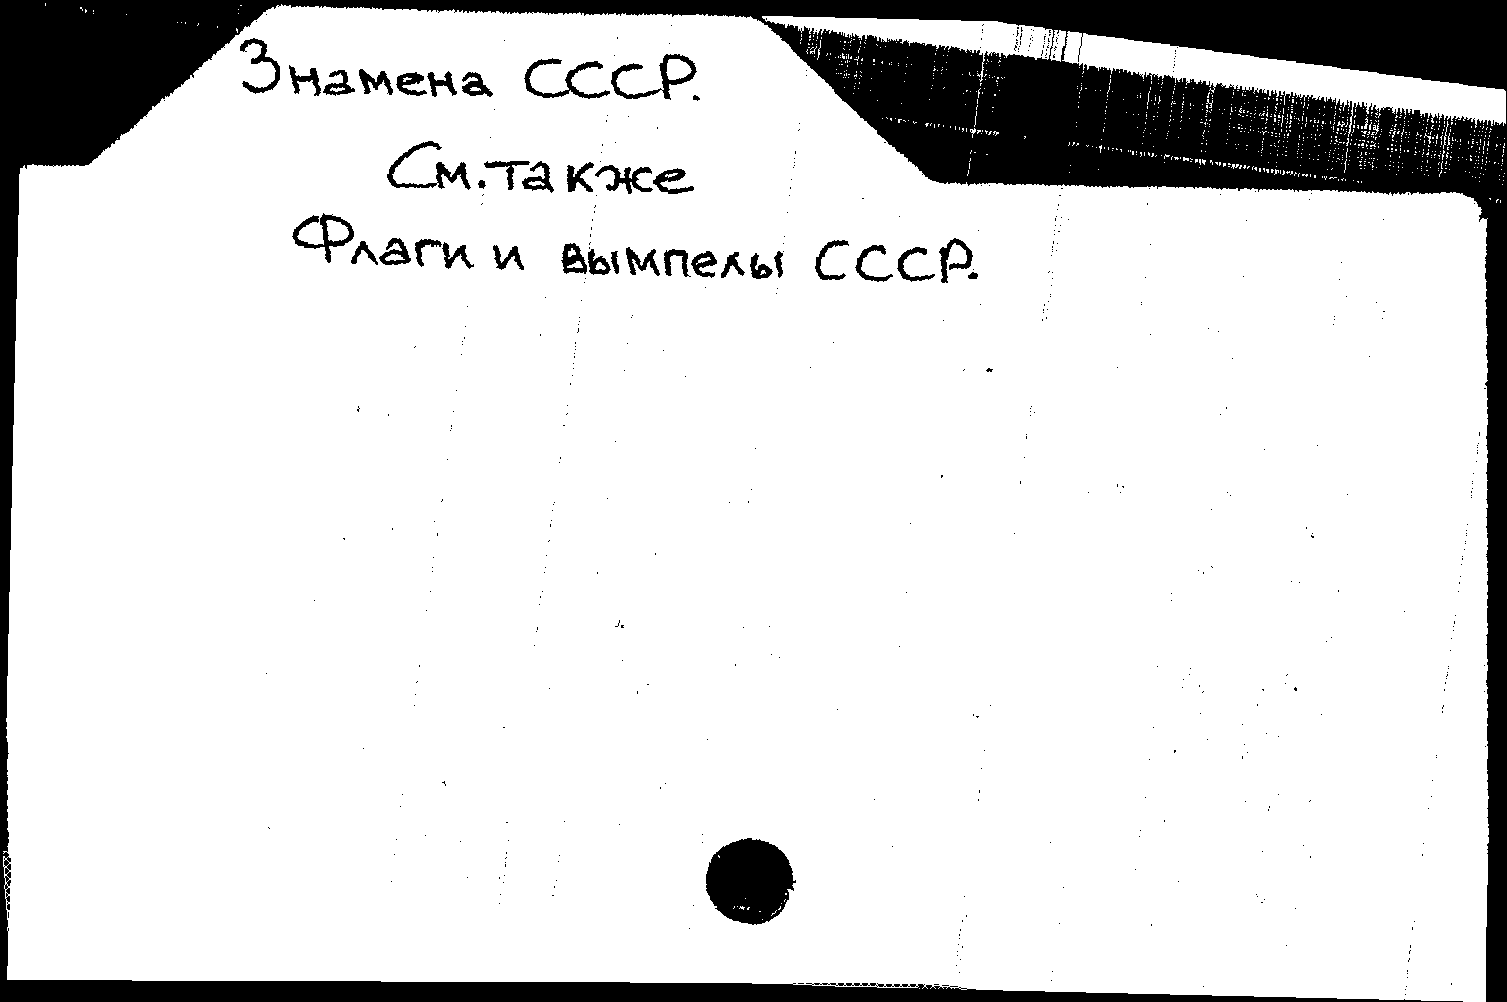 Знамена СССР.
См. также
Флаги и вымпелы СССР.